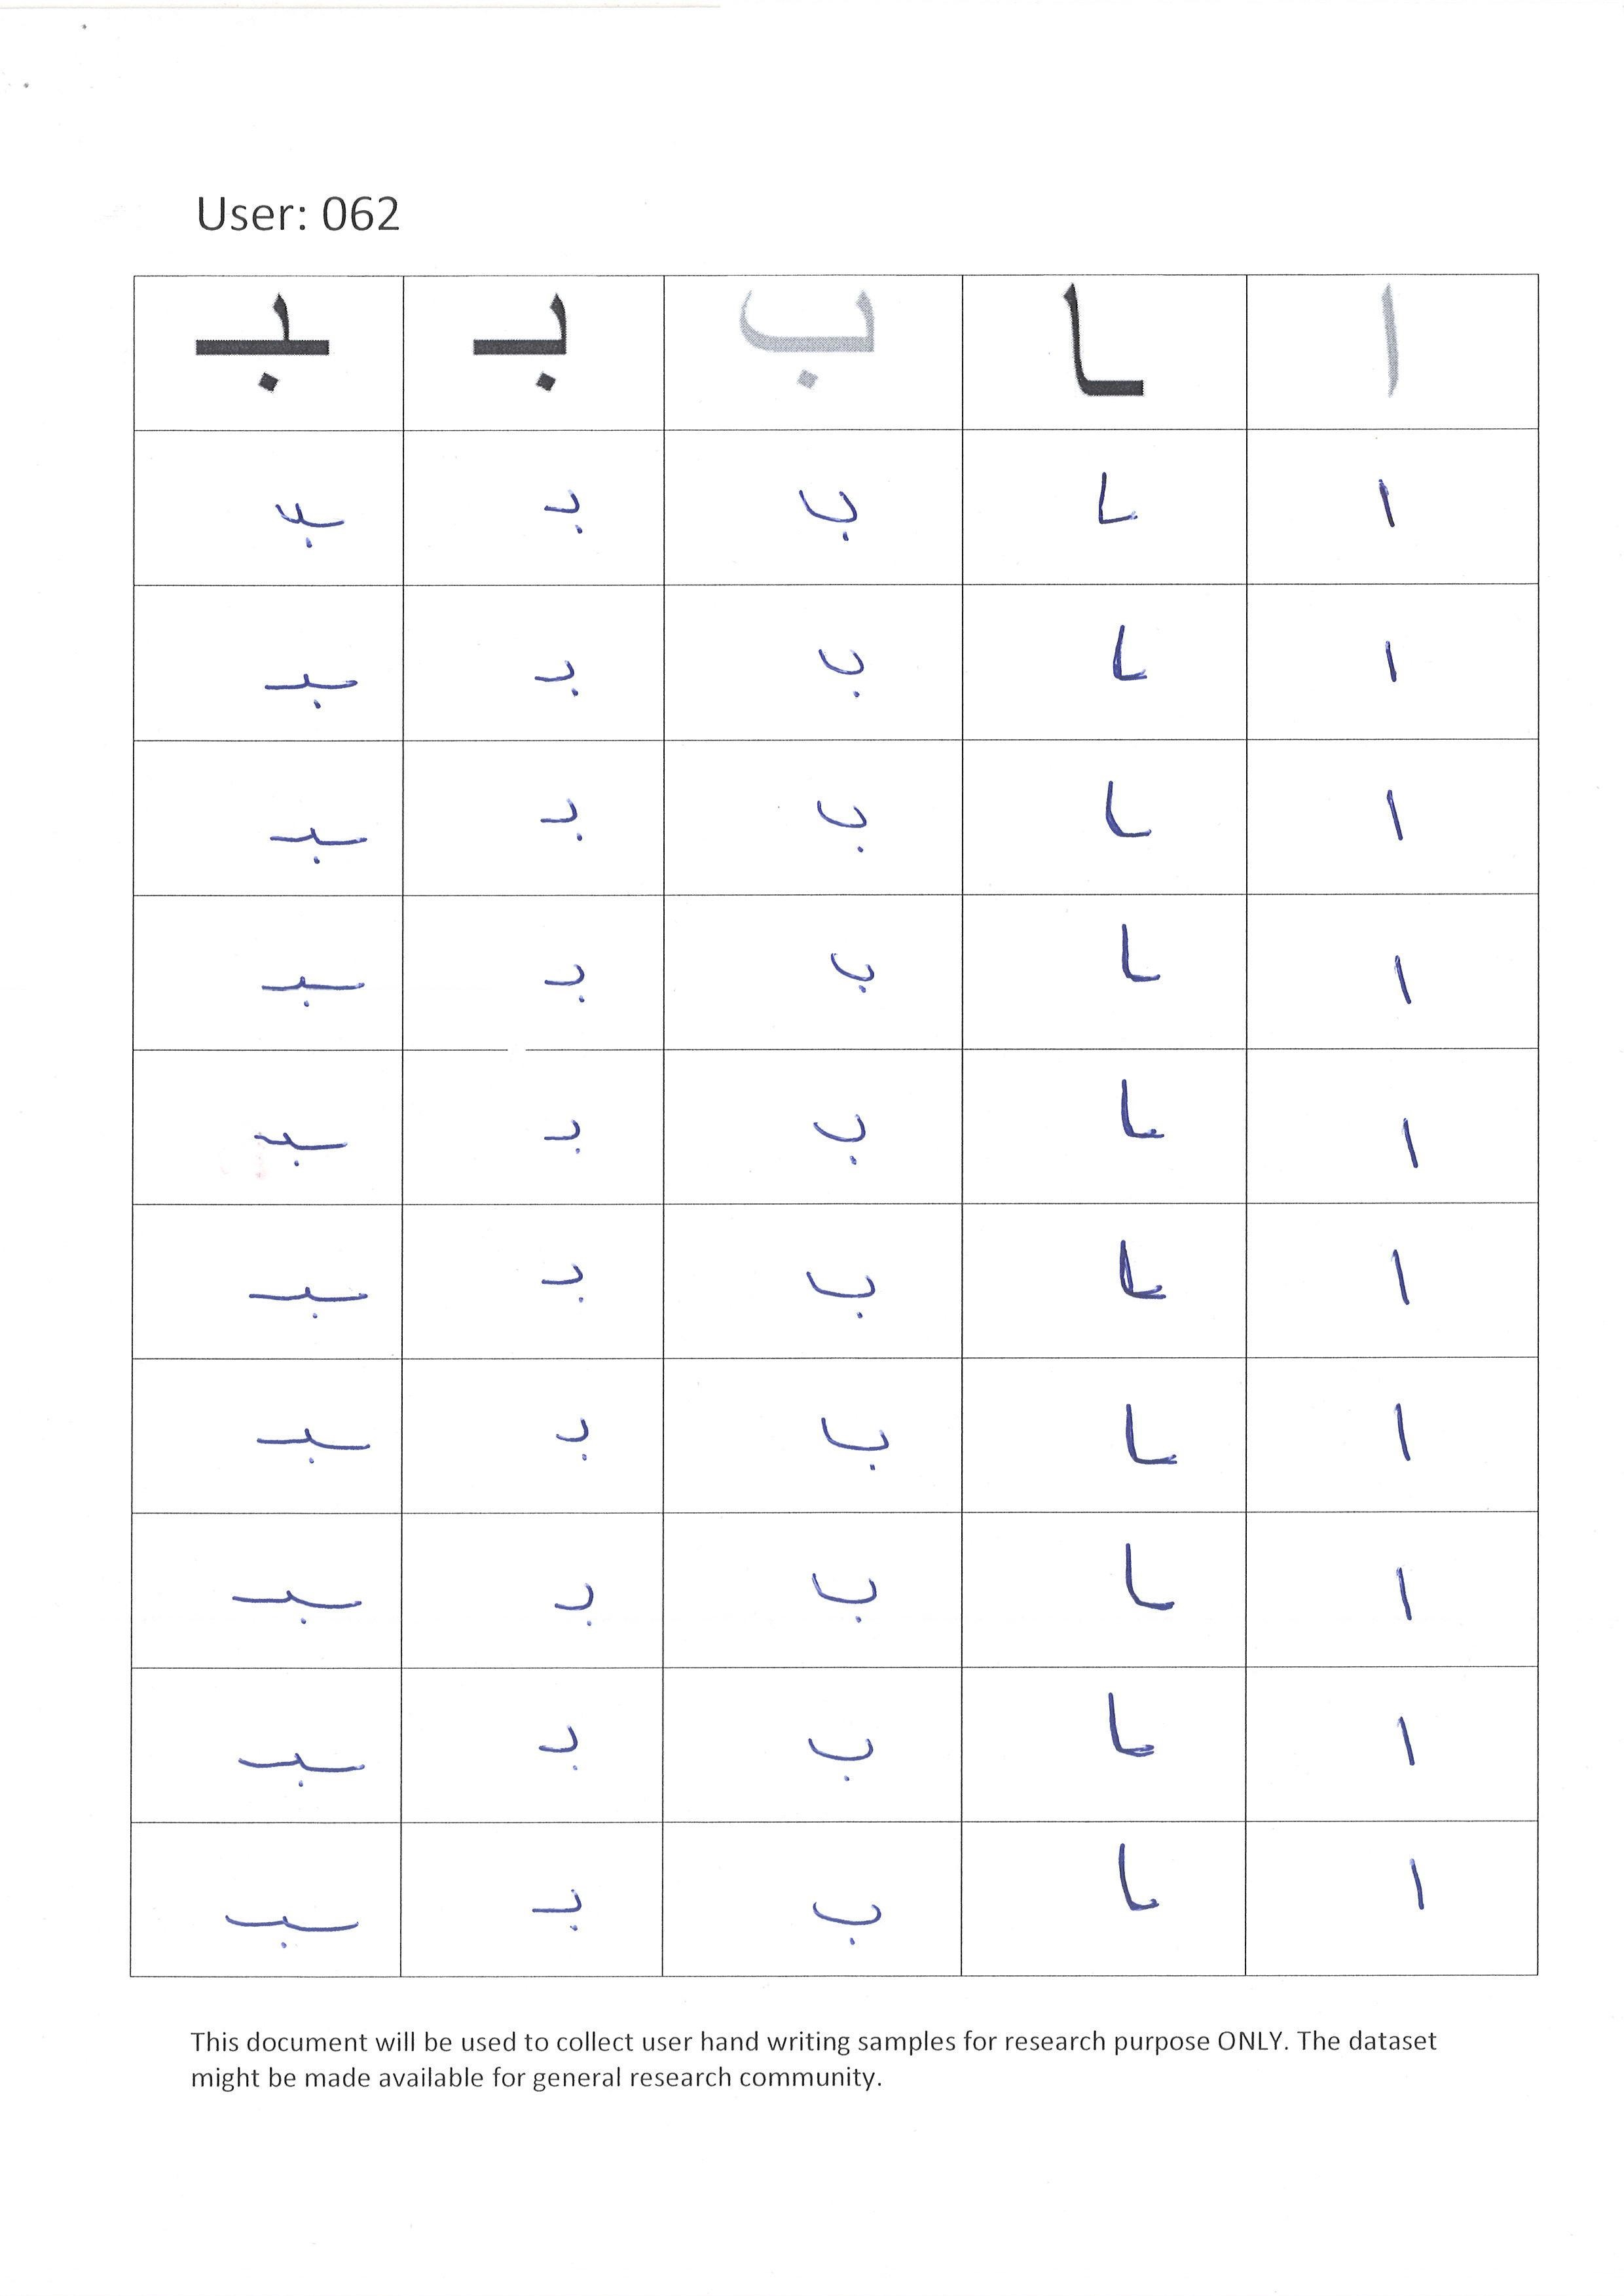 User: 062
ا ـا ب بـ ـبـ
ا ـا ب بـ ـبـ
ا ـا ب بـ ـبـ
ا ـا ب بـ ـبـ
ا ـا ب بـ ـبـ
ا ـا ب بـ ـبـ
ا ـا ب بـ ـبـ
ا ـا ب بـ ـبـ
ا ـا ب بـ ـبـ
ا ـا ب بـ ـبـ
ا ـا ب بـ ـبـ
This document will be used to collect user hand writing samples for research purpose ONLY. The dataset
might be made available for general research community.